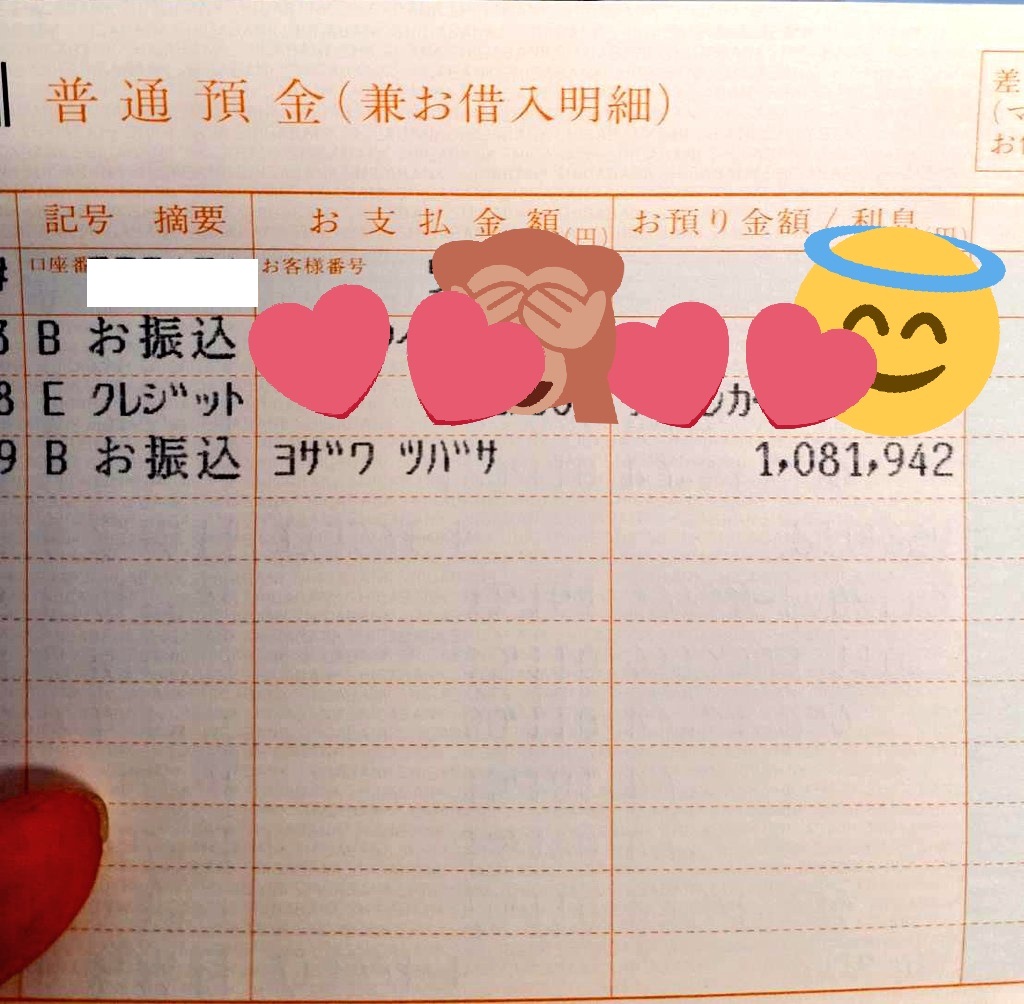 普通預金(兼お借入明細)
差
(マ
お
記号 摘要 お支払金額(円) お預り金額/利息(円)
口座番 お客様番号
3 B お振込
8 E クレジット
9 B お振込 ヨザワ ツバサ 1,081,942